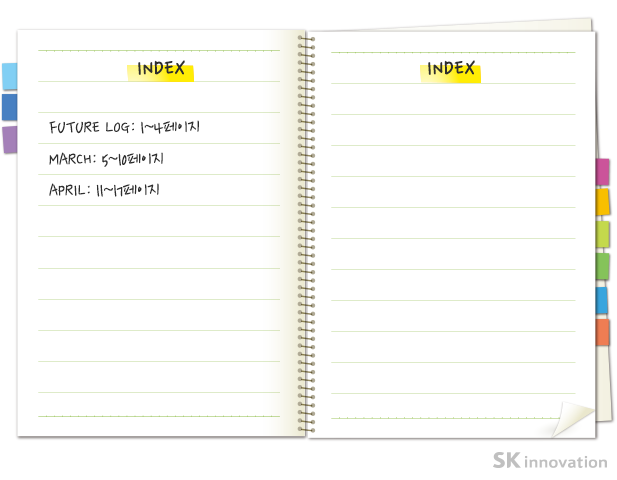 INDEX
FUTURE LOG: 1~4페이지
MARCH: 5~10페이지
APRIL: 11~17페이지
INDEX
SK innovation